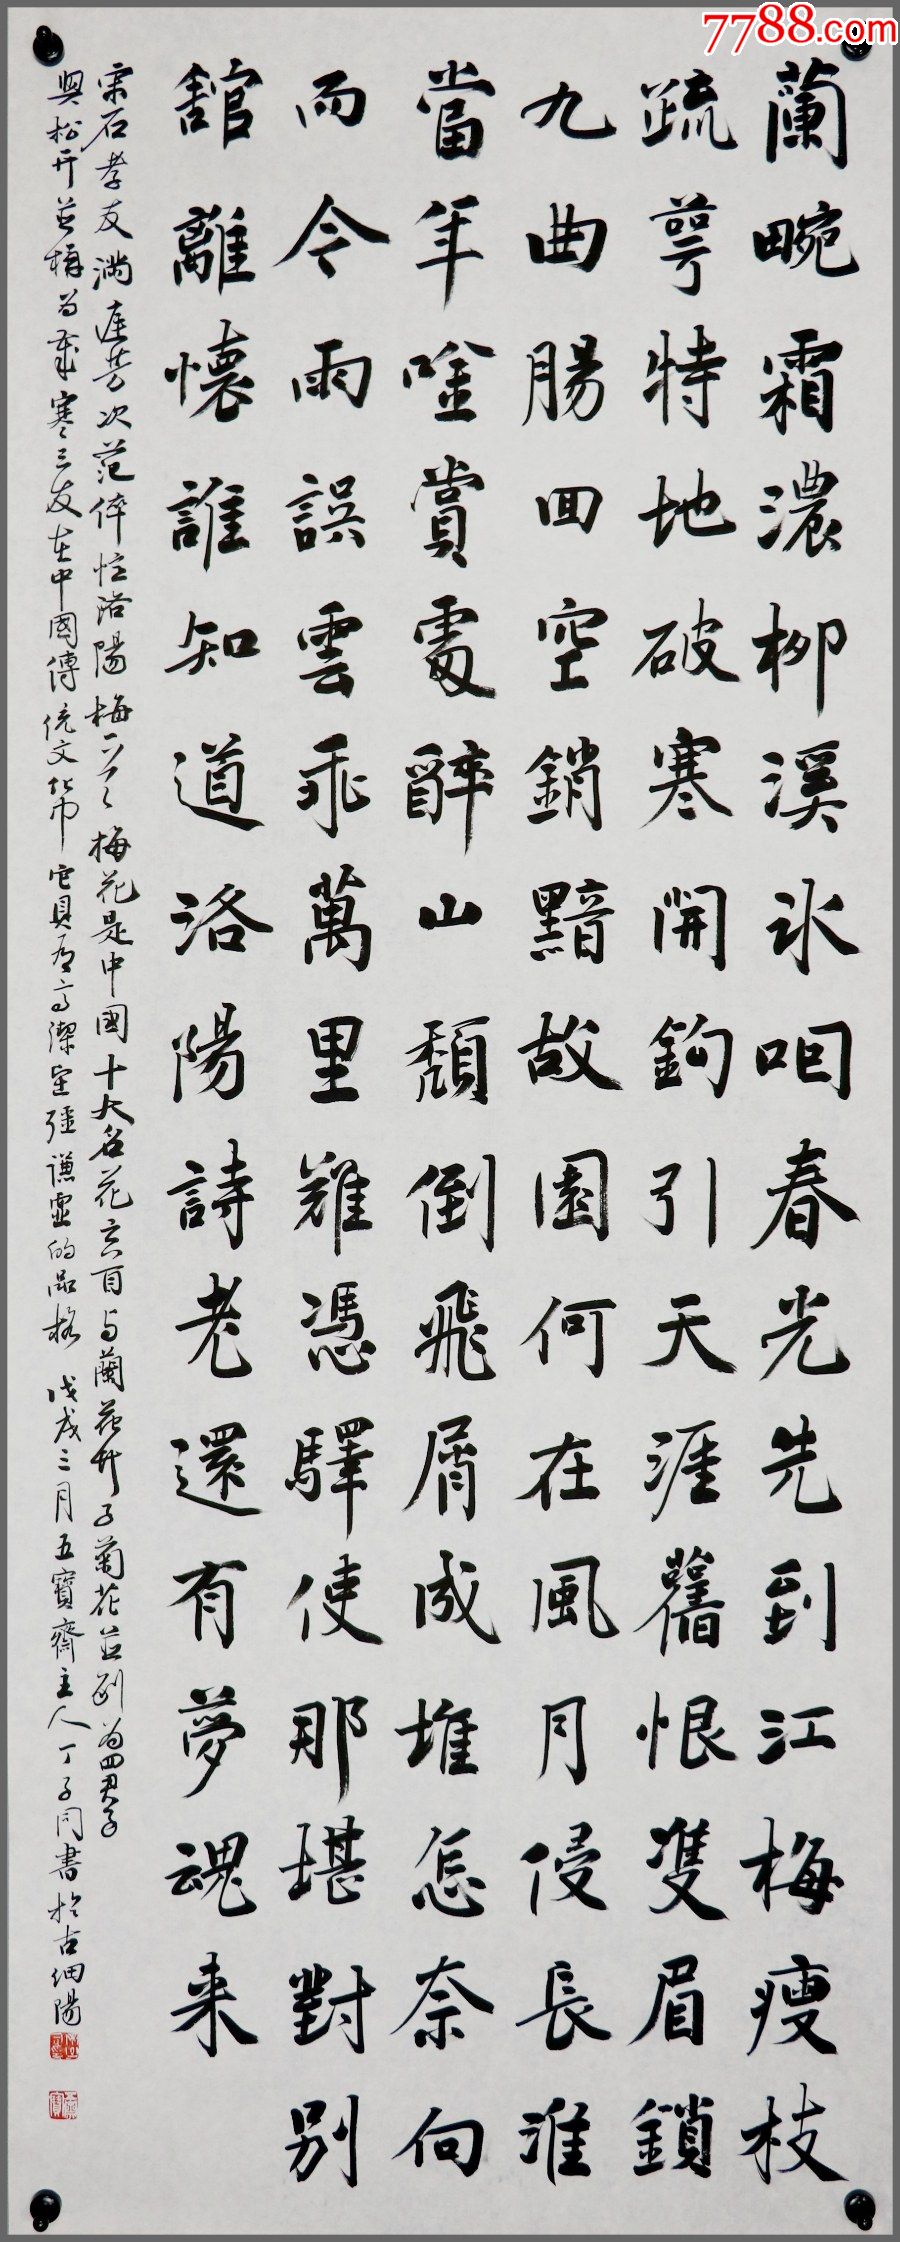 7788.com
蘭畹霜濃柳溪冰咽春光先到江梅瘦枝
疏萼特地破寒開鉤引天涯舊恨雙眉鎖
九曲腸回空銷黯故園何在風月侵長淮
當年唫賞處醉山頹倒飛屑成堆怎奈向
而今雨誤雲乖萬里難憑驛使那堪對別
館離懷誰知道洛陽詩老還有夢魂来
宋石孝友滿庭芳次范倅憶洛陽梅一首 梅花是中國十大名花之首与蘭花竹子菊花並列為四君子
與松竹並稱為歲寒三友在中國傳統文化中它具有高潔堅強謙虛的品格 戊戌三月五寶齋主人丁子同書於古细陽